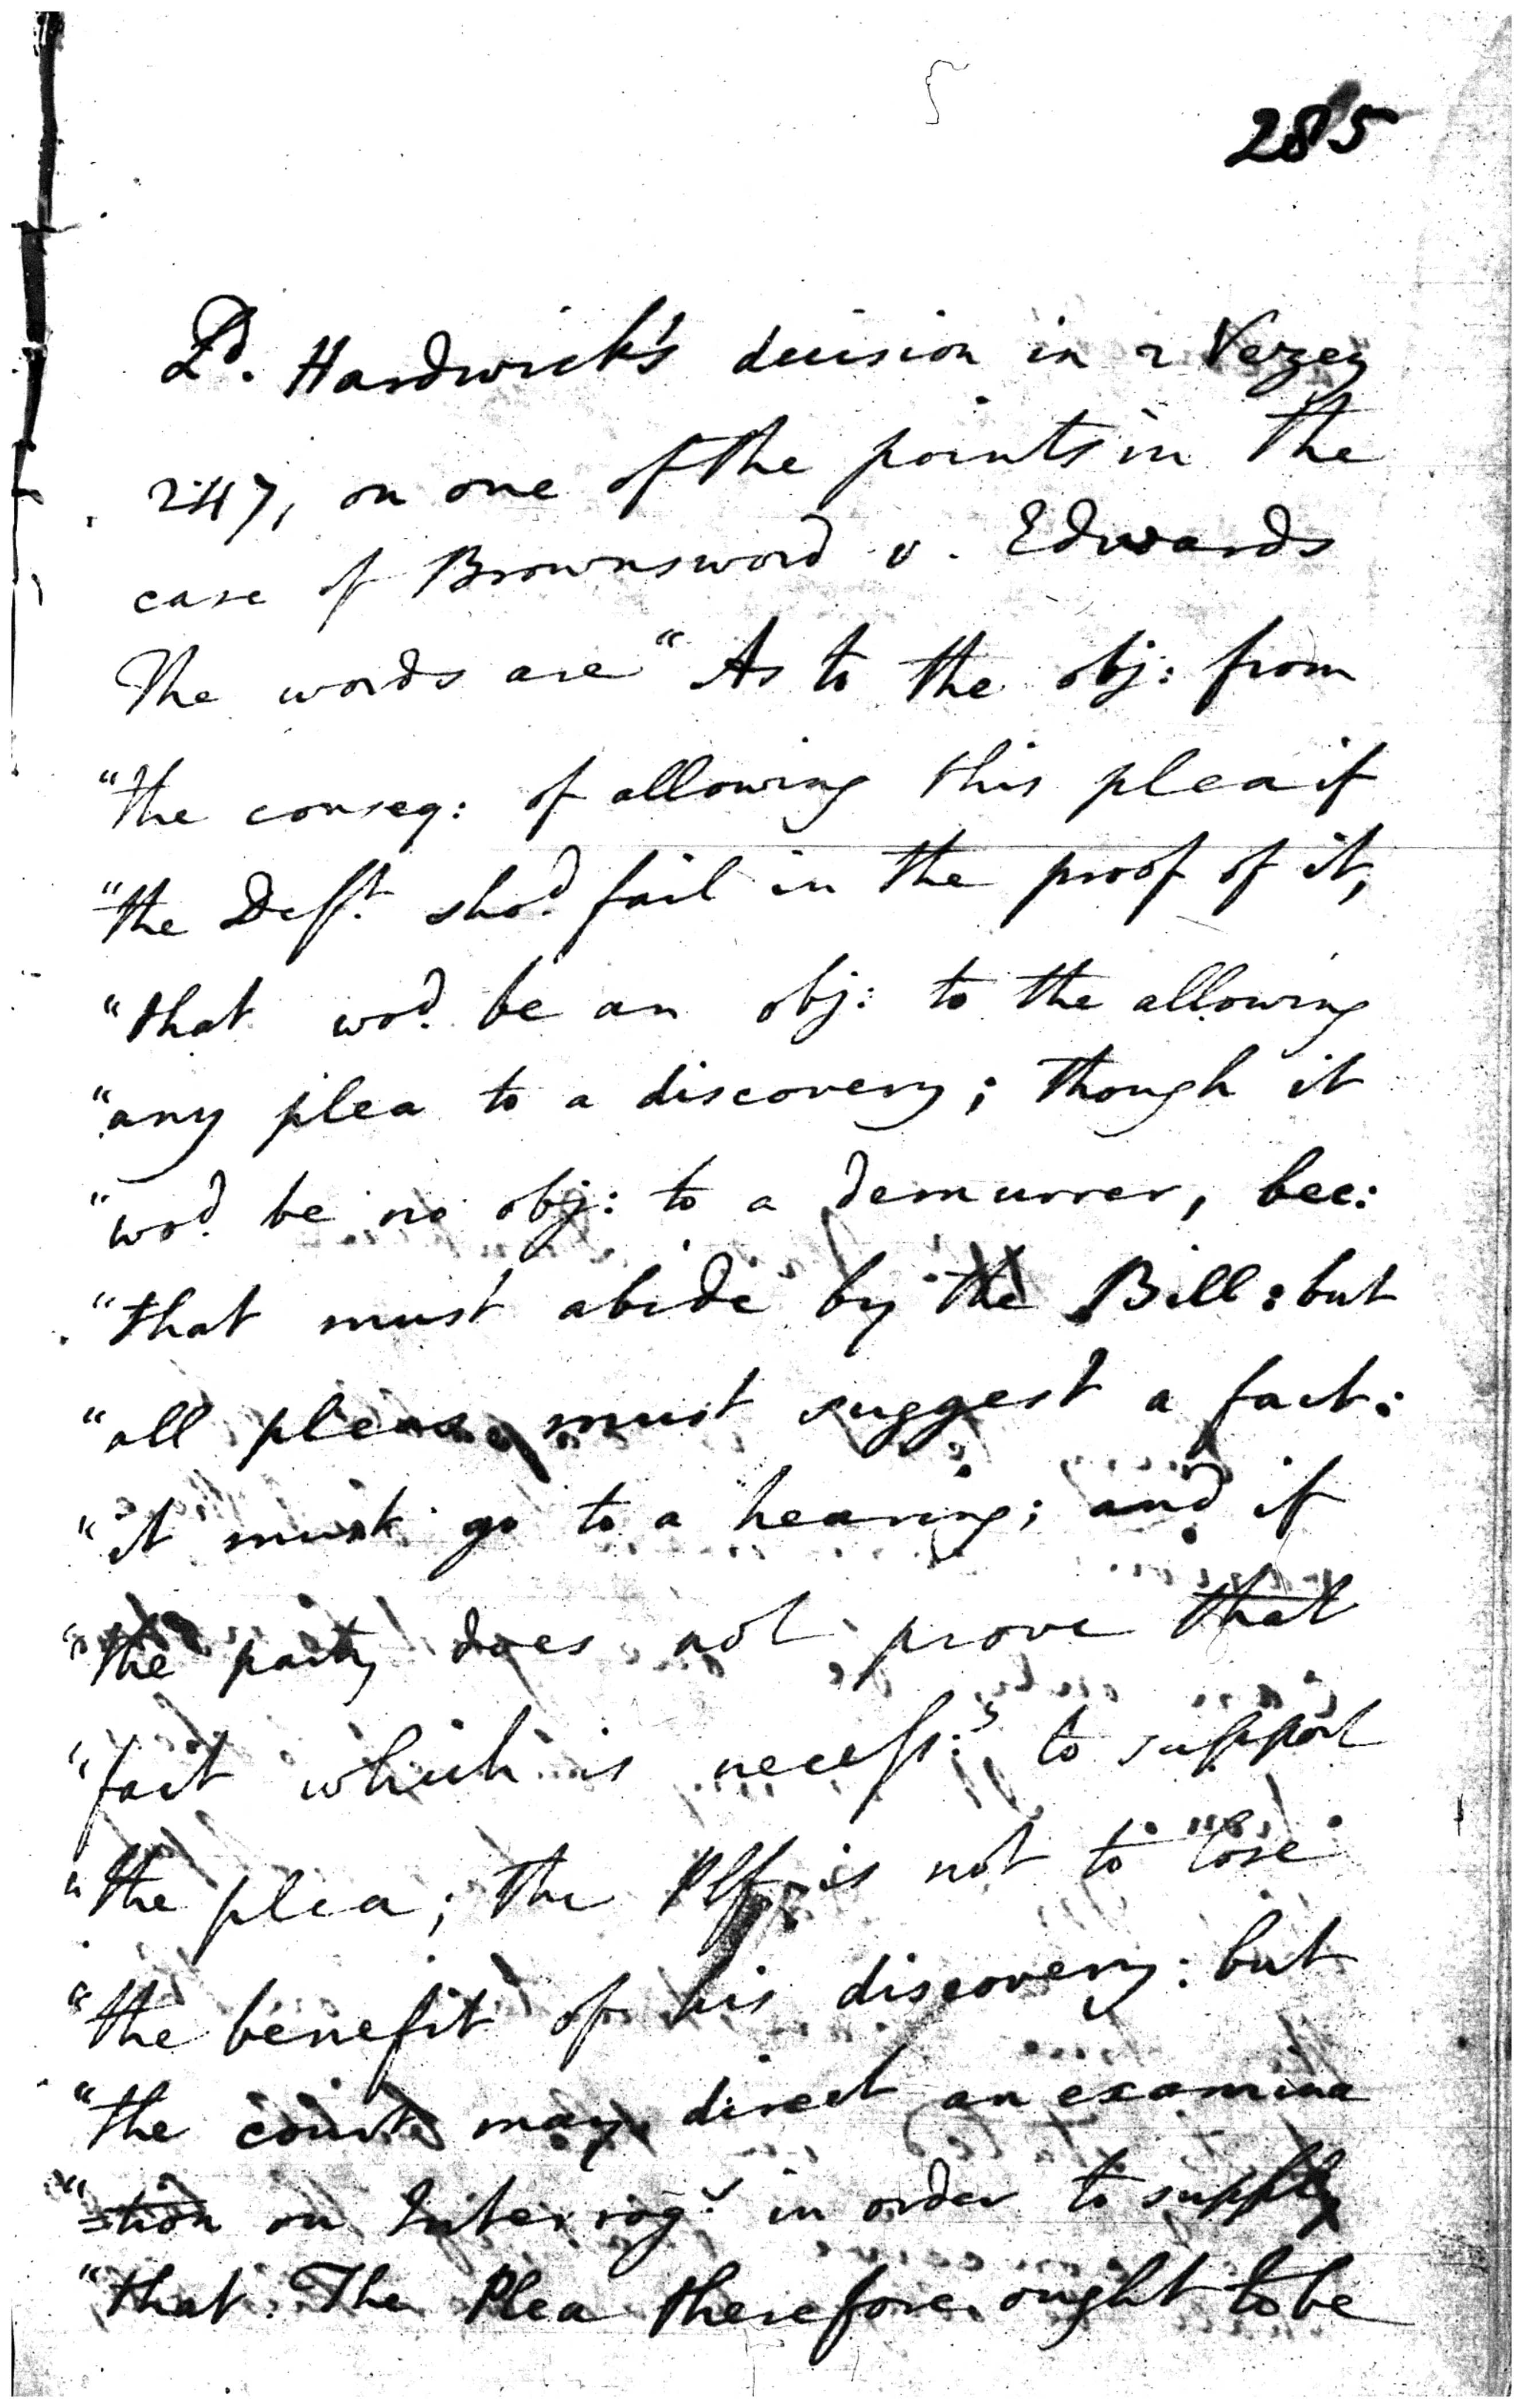 285
Ld. Hardwick's decision in 2 Vezey
247, on one of the points in the
case of Brownsword v. Edwards
The words are "As to the obj: from
"the conseq: of allowing this plea if
"the Deft. shod. fail in the proof of it,
"that wod. be an obj: to the allowing
"any plea to a discovery; though it
"wod. be no obj: to a demurrer, bec:
"that must abide by the Bill: but
"all pleas must suggest a fact:
"it must go to a hearing; and if
"the party does not prove that
"fact which is necessy. to support
"the plea; the Plf. is not to lose
"the benefit of his discovery: but
"the court may direct an examina
"=tion on Interrogs. in order to supply
"that. The Plea therefore ought to be